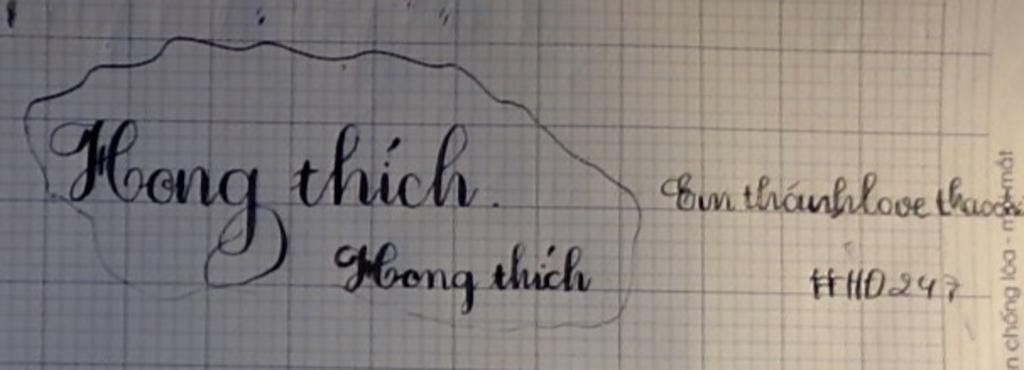 Hong thích.
Hong thích
thánhlove
#HD247
n chống lóa - mỏi mắt